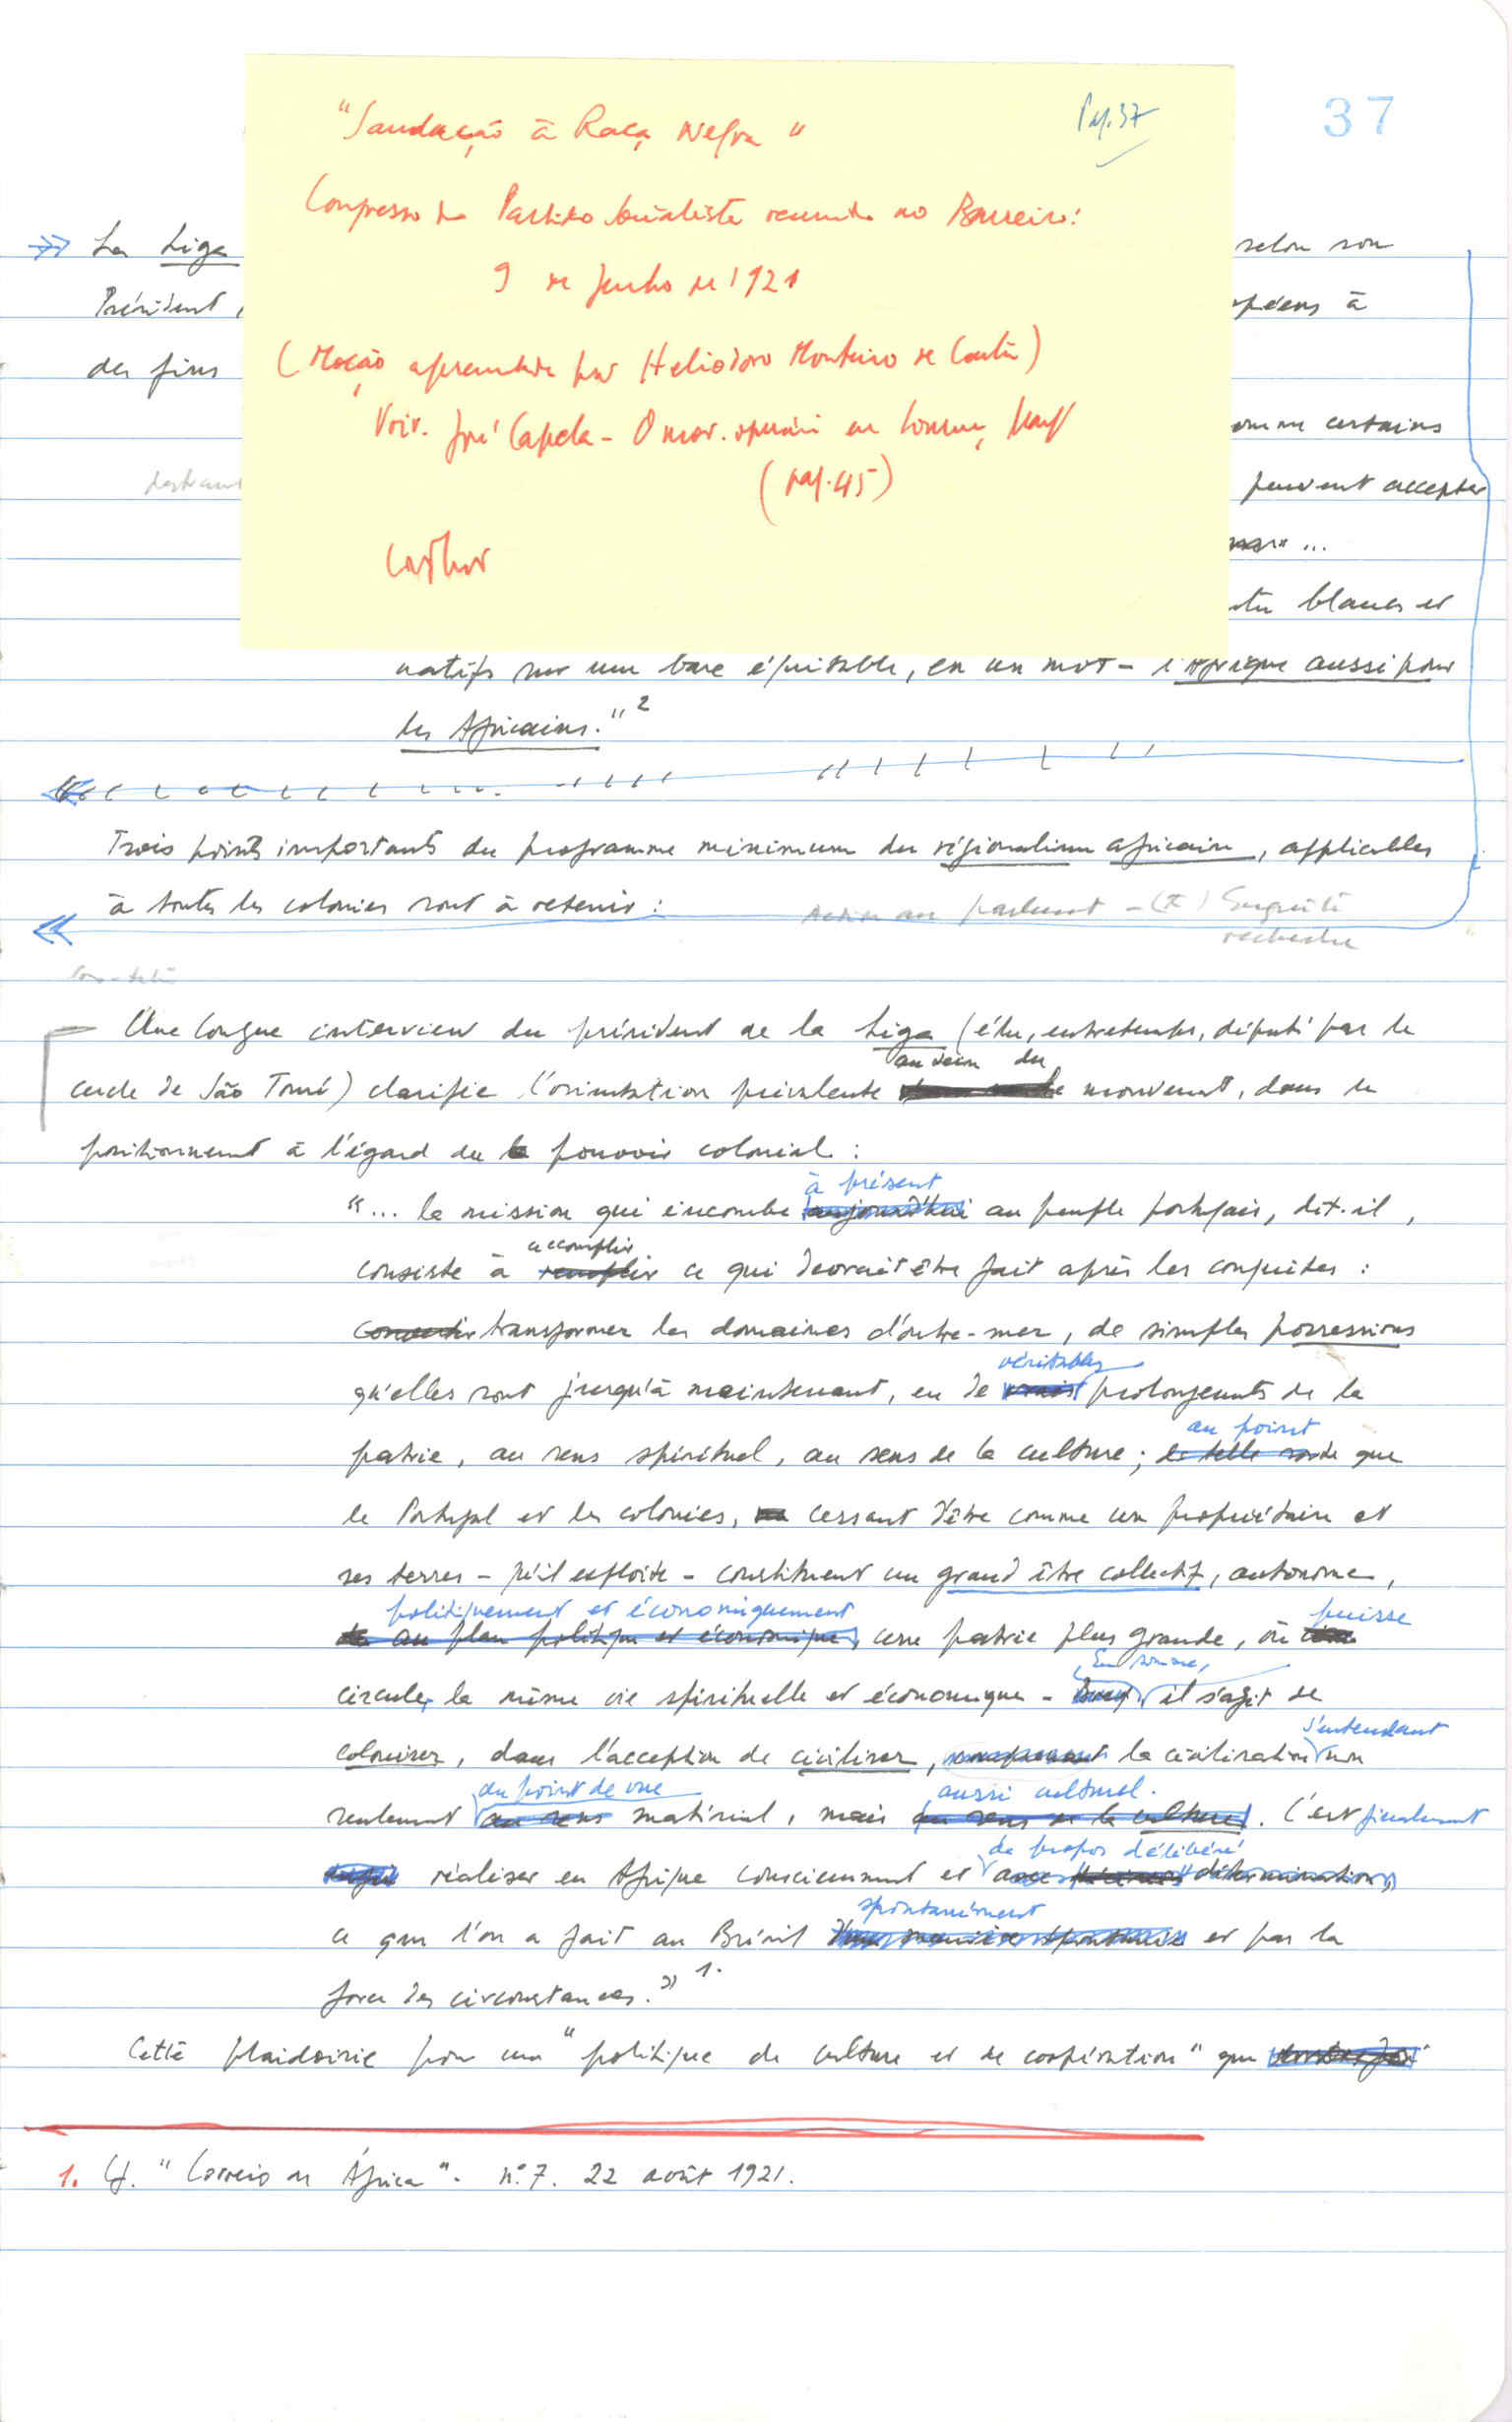 37
Pag. 37
"Saudação à Raça Negra"
Congresso do Partido Socialista reunido no Barreiro:
9 de Junho de 1921
(Moção apresentada por Heliodoro Monteiro de Castro)
Voir. José Capela - O mov. operário em Lourenço Marq
(pag. 45)
La Liga
selon son
Président,
opéens à
des fins
omme certains
peuvent accepter
...
blancs et
natifs sur une base équitable, en un mot - l'Afrique aussi pour
les Africains."²
Trois points importants du programme minimum du régionalisme africain, applicables
à toutes les colonies sont à retenir :
recherche
Une longue interview du président de la Liga (élu, entretemps, député par le
au sein du
cercle de São Tomé) clarifie l'orientation prévalente mouvement, dans le
positionnement à l'égard du pouvoir colonial :
à présent
"... la mission qui incombe aujourd'hui au peuple portugais, dit-il,
accomplir
consiste à remplir ce qui devrait être fait après les conquêtes :
convertir transformer les domaines d'outre-mer, de simples possessions
véritables
qu'elles sont jusqu'à maintenant, en de vrais prolongements de la
au point
patrie, au sens spirituel, au sens de la culture ; de telle sorte que
le Portugal et les colonies, cessant d'être comme un propriétaire et
ses terres - qu'il exploite - constituent un grand être collectif, autonome,
politiquement et économiquement puisse
au plan politique et économique, une patrie plus grande, où
En somme,
circuler la même vie spirituelle et économique - Bref, il s'agit de
s'entendant
coloniser, dans l'acception de civiliser, la civilisation non
du point de vue aussi culturel.
seulement au sens matériel, mais au sens de la culture. C'est finalement
de propos délibéré
réaliser en Afrique consciemment et avec détermination,
spontanément
ce que l'on a fait au Brésil d'une manière spontanée et par la
force des circonstances." 1.
Cette plaidoirie pour une "politique de culture et de coopération" que
1. Cf. "Correio de África". nº 7. 22 août 1921.